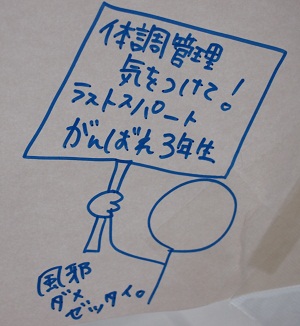 体調管理
気をつけて!
ラストスパート
がんばれ3年生
風邪
ダメ
ゼッタイ。